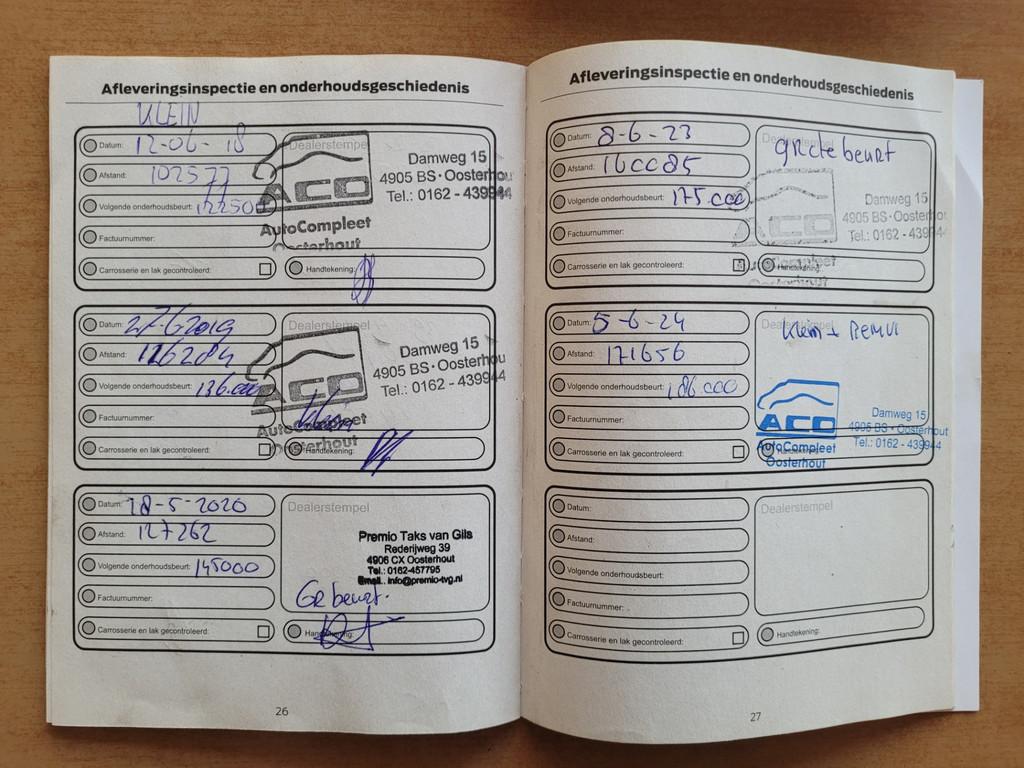 Afleveringsinspectie en onderhoudsgeschiedenis
KLEIN
Datum: 12-06-18
Dealerstempel
Afstand: 102577
Volgende onderhoudsbeurt: 122500
ACO
AutoCompleet
Oosterhout
Damweg 15
4905 BS · Oosterhou
Tel.: 0162 - 439944
Factuurnummer:
Carrosserie en lak gecontroleerd:
Handtekening:
Datum: 27-6-2019
Dealerstempel
Afstand: 126284
Volgende onderhoudsbeurt: 136.000
ACO
AutoCompleet
Oosterhout
Damweg 15
4905 BS · Oosterhou
Tel.: 0162 - 439944
Factuurnummer:
Carrosserie en lak gecontroleerd:
Handtekening:
Datum: 18-5-2020
Dealerstempel
Afstand: 127262
Volgende onderhoudsbeurt: 145000
Premio Taks van Gils
Rederijweg 39
4906 CX Oosterhout
Tel.: 0162-457795
Email.. info@premio-tvg.nl
GR beurt.
Factuurnummer:
Carrosserie en lak gecontroleerd:
Handtekening:
26
Afleveringsinspectie en onderhoudsgeschiedenis
Datum: 8-6-23
Dealerstempel
GROte beurt
Afstand: 160085
Volgende onderhoudsbeurt: 175.000
ACO
AutoCompleet
Oosterhout
Damweg 15
4905 BS · Oosterhou
Tel.: 0162 - 439944
Factuurnummer:
Carrosserie en lak gecontroleerd:
Handtekening:
Datum: 5-6-24
Dealerstempel
Klein + REMVL
Afstand: 171656
Volgende onderhoudsbeurt: 186.000
ACO
AutoCompleet
Oosterhout
Damweg 15
4905 BS · Oosterhout
Tel.: 0162 - 439944
Factuurnummer:
Carrosserie en lak gecontroleerd:
Handtekening:
Datum:
Dealerstempel
Afstand:
Volgende onderhoudsbeurt:
Factuurnummer:
Carrosserie en lak gecontroleerd:
Handtekening:
27